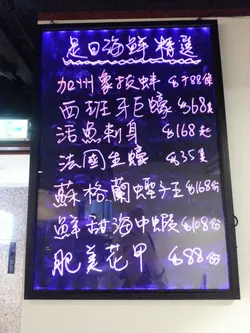 是日海鮮精選
加州象拔蚌 $788條
西班牙巨蠔 $68隻
活魚刺身 $168起
法國生蠔 $35隻
蘇格蘭蟶子王 $168份
鮮甜海中蝦 $168份
肥美花甲 $88份